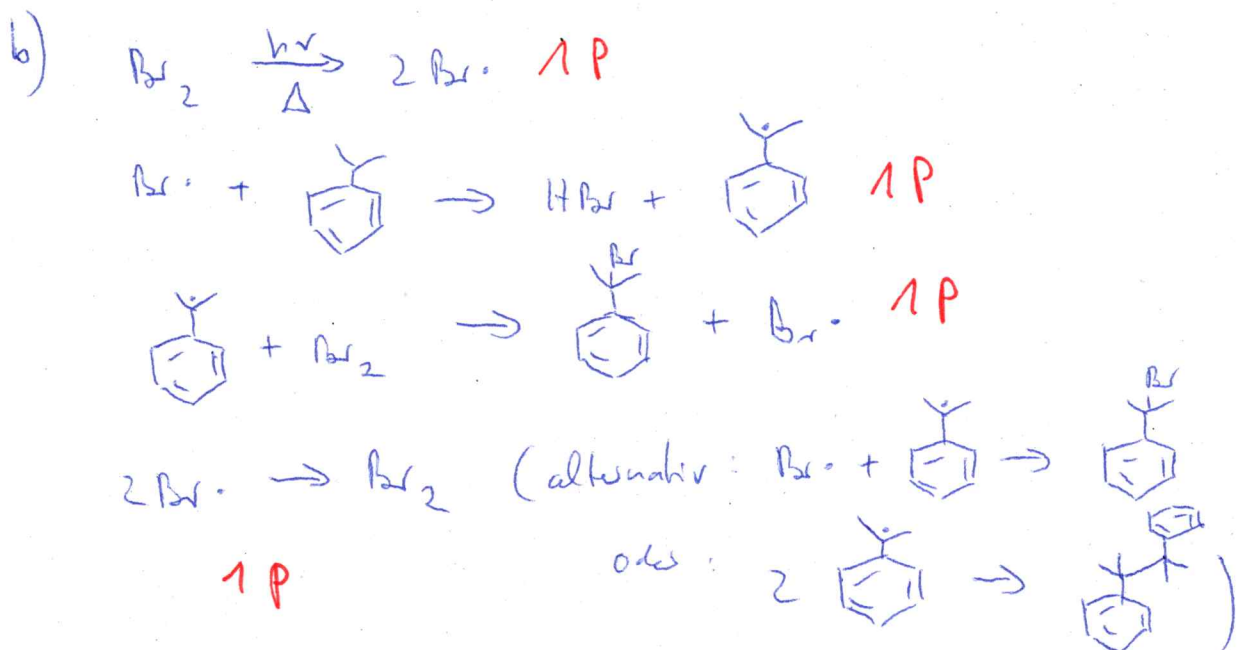 b) Br₂ hν → Δ 2 Br· 1 P
Br· + → HBr + 1 P
Br
+ Br₂ → + Br· 1 P
Br
2 Br· → Br₂ (alternativ: Br· + →
1 P oder: 2 → )